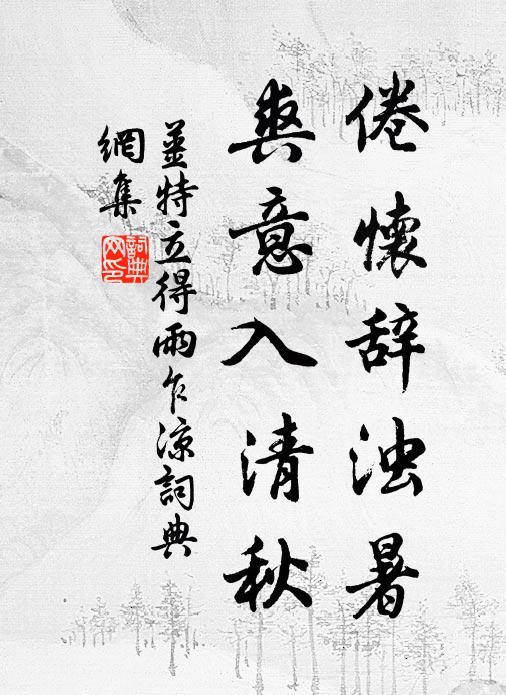 倦懷辞浊暑
爽意入清秋
姜特立得雨乍涼詞典
網集
詞典
网印